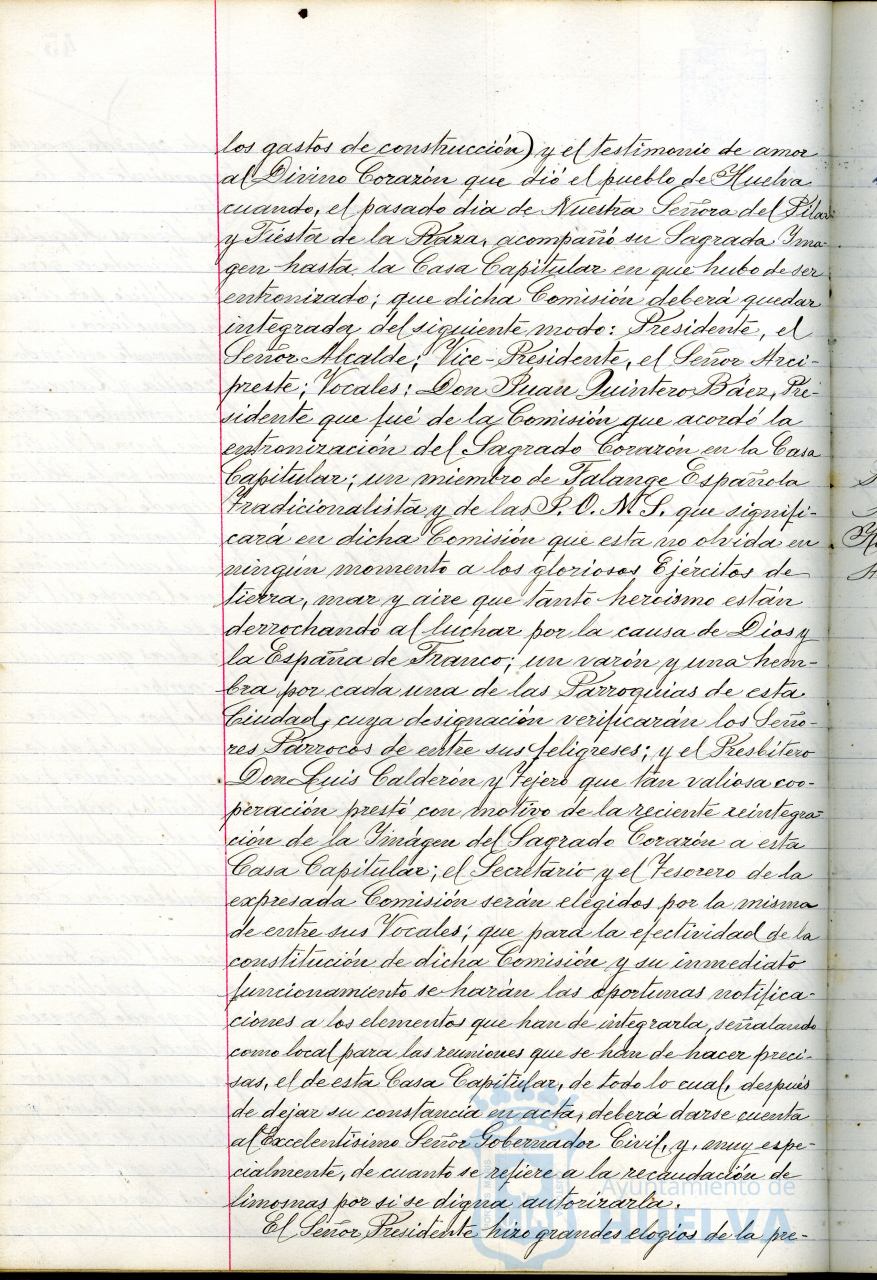 los gastos de construcción) y el testimonio de amor
al Divino Corazón que dió el pueblo de Huelva
cuando, el pasado dia de Nuestra Señora del Pilar
y Fiesta de la Raza, acompañó su Sagrada Ima-
gen hasta la Casa Capitular en que hubo de ser
entronizado; que dicha Comisión deberá quedar
integrada del siguiente modo: Presidente, el
Señor Alcalde; Vice-Presidente, el Señor Arci-
preste; Vocales: Don Juan Quintero Báez, Pre-
sidente que fué de la Comisión que acordó la
entronización del Sagrado Corazón en la Casa
Capitular; un miembro de Falange Española
Tradicionalista y de las J. O. N. S. que signifi-
cará en dicha Comisión que esta no olvida en
ningún momento a los gloriosos Ejércitos de
tierra, mar y aire que tanto heroismo están
derrochando al luchar por la causa de Dios y
la España de Franco; un varón y una hem-
bra por cada una de las Parroquias de esta
Ciudad, cuya designación verificarán los Seño-
res Párrocos de entre sus feligreses; y el Presbítero
Don Luis Calderón y Tejero que tan valiosa coo-
peración prestó con motivo de la reciente reintegra-
ción de la Imágen del Sagrado Corazón a esta
Casa Capitular; el Secretario y el Tesorero de la
expresada Comisión serán elegidos por la misma
de entre sus Vocales; que para la efectividad de la
constitución de dicha Comisión y su inmediato
funcionamiento se harán las oportunas notifica-
ciones a los elementos que han de integrarla, señalando
como local para las reuniones que se han de hacer preci-
sas, el de esta Casa Capitular, de todo lo cual, después
de dejar su constancia en acta, deberá darse cuenta
al Excelentísimo Señor Gobernador Civil, y, muy espe-
cialmente, de cuanto se refiere a la recaudación de
limosnas por si se digna autorizarla.
El Señor Presidente hizo grandes elogios de la pre-
Ayuntamiento de
HUELVA